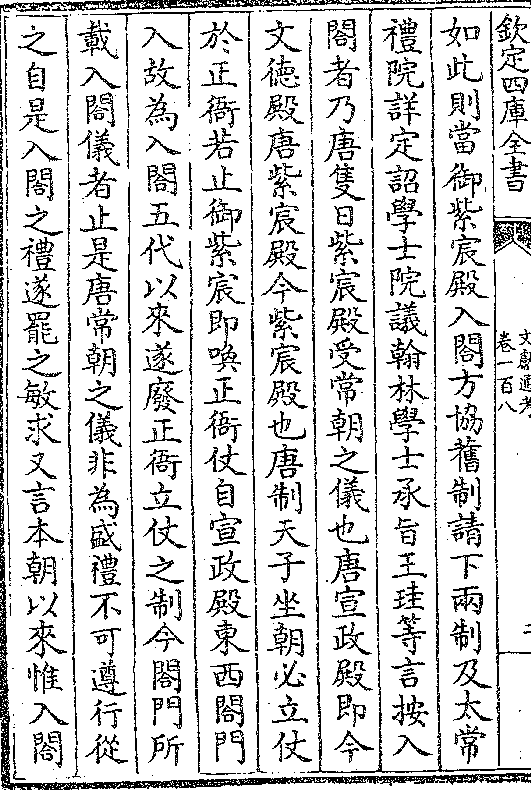 欽定四庫全書
文獻通考
卷一百八
如此則當御紫宸殿入閤方協舊制請下兩制及太常
禮院詳定詔學士院議翰林學士承旨王珪等言按入
閤者乃唐隻日紫宸殿受常朝之儀也唐宣政殿即今
文德殿唐紫宸殿今紫宸殿也唐制天子坐朝必立仗
於正衙若止御紫宸即喚正衙仗自宣政殿東西閤門
入故為入閤五代以來遂廢正衙立仗之制今閤門所
載入閤儀者止是唐常朝之儀非為盛禮不可遵行從
之自是入閤之禮遂罷之敏求又言本朝以來惟入閤